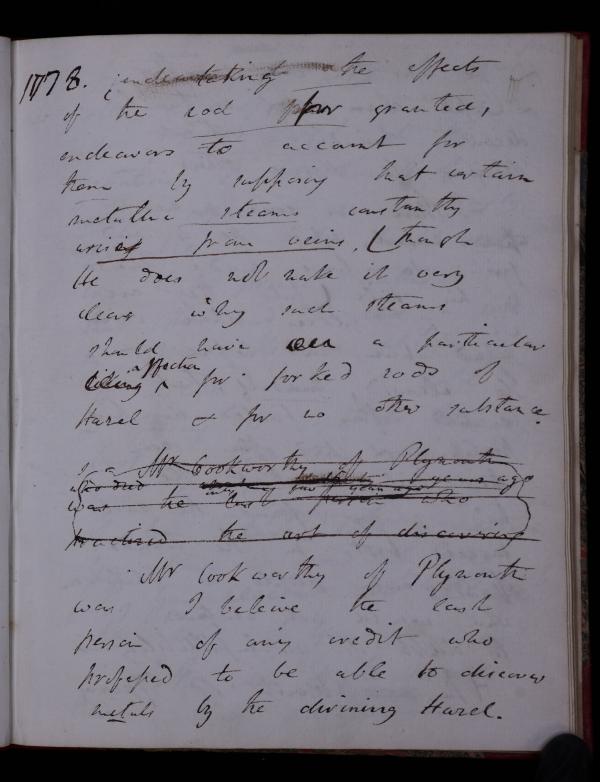 1778. taking the effects
of the rod for granted,
endeavors to account for
them by supposing that certain
metallic steams constantly
arising from veins, (though
He does not make it very
clear why such steams
should have a particular
liking affection for forked rods of
Hazel & for no other substance.
Mr Cookworthy of Plymouth
who died years ago
was the last person who
practised the art of discovering
Mr Cookworthy of Plymouth
was I beleive the last
person of any credit who
professed to be able to discover
metals by the divining Hazel.